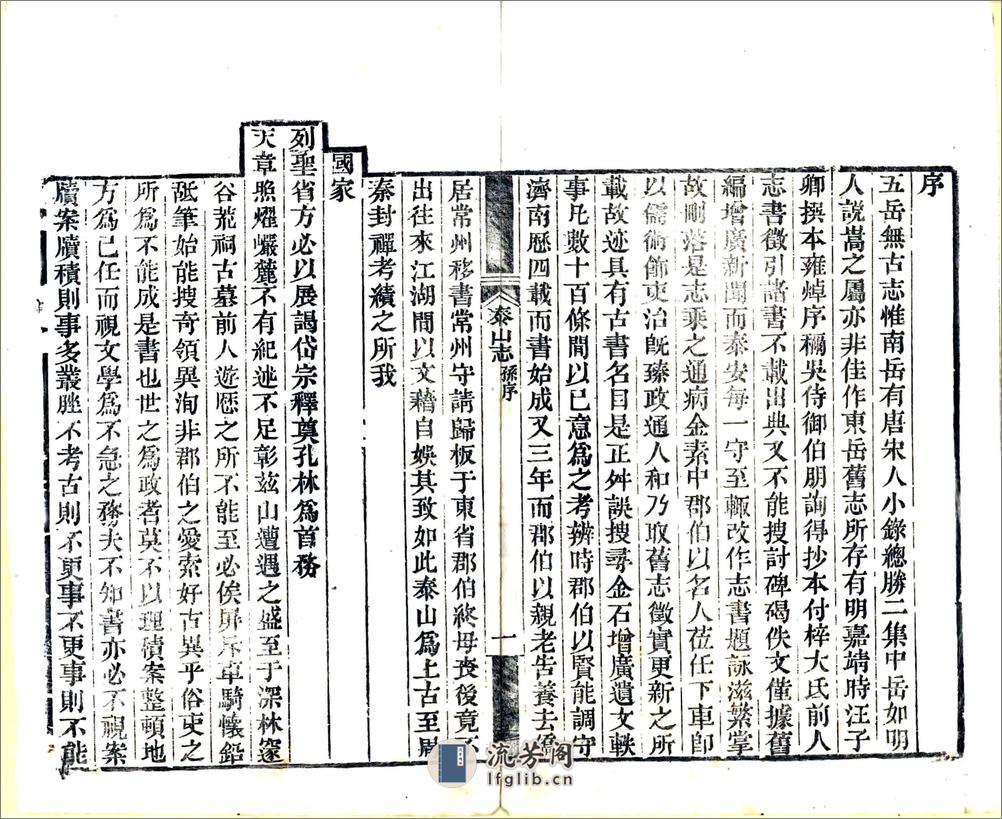 序
五岳無古志惟南岳有唐宋人小錄總勝二集中岳如明
人說嵩之屬亦非佳作東岳舊志所存有明嘉靖時汪子
卿撰本雍焯序稱吳侍御伯朋詢得抄本付梓大氐前人
志書徵引諸書不載出典又不能搜討碑碣佚文僅據舊
編增廣新聞而泰安每一守至輒改作志書題詠滋繁掌
故刪落是志乘之通病金素中郡伯以名人莅任下車即
以儒術飾吏治旣臻政通人和乃取舊志徵實更新之所
載故迹具有古書名目是正舛誤搜尋金石增廣遺文軼
事凡數十百條間以已意為之考辨時郡伯以賢能調守
濟南歷四載而書始成又三年而郡伯以親老告養去僑
泰山志
孫序
一
居常州移書常州守請歸板于東省郡伯終母喪後竟不
出往來江湖間以文藉自娛其致如此泰山為上古至周
秦封禪考績之所我
國家
列聖省方必以展謁岱宗釋奠孔林為首務
天章照燿巖麓不有紀述不足彰茲山遭遇之盛至于深林窔
谷荒祠古墓前人遊歷之所不能至必俟屏斥車騎懷鉛
舐筆始能搜奇領異洵非郡伯之愛索好古異乎俗吏之
所為不能成是書也世之為政者莫不以理積案整頓地
方為已任而視文學為不急之務夫不知書亦必不視案
牘案牘積則事多叢脞不考古則不更事不更事則不能
流芳閣
lfglib.cn